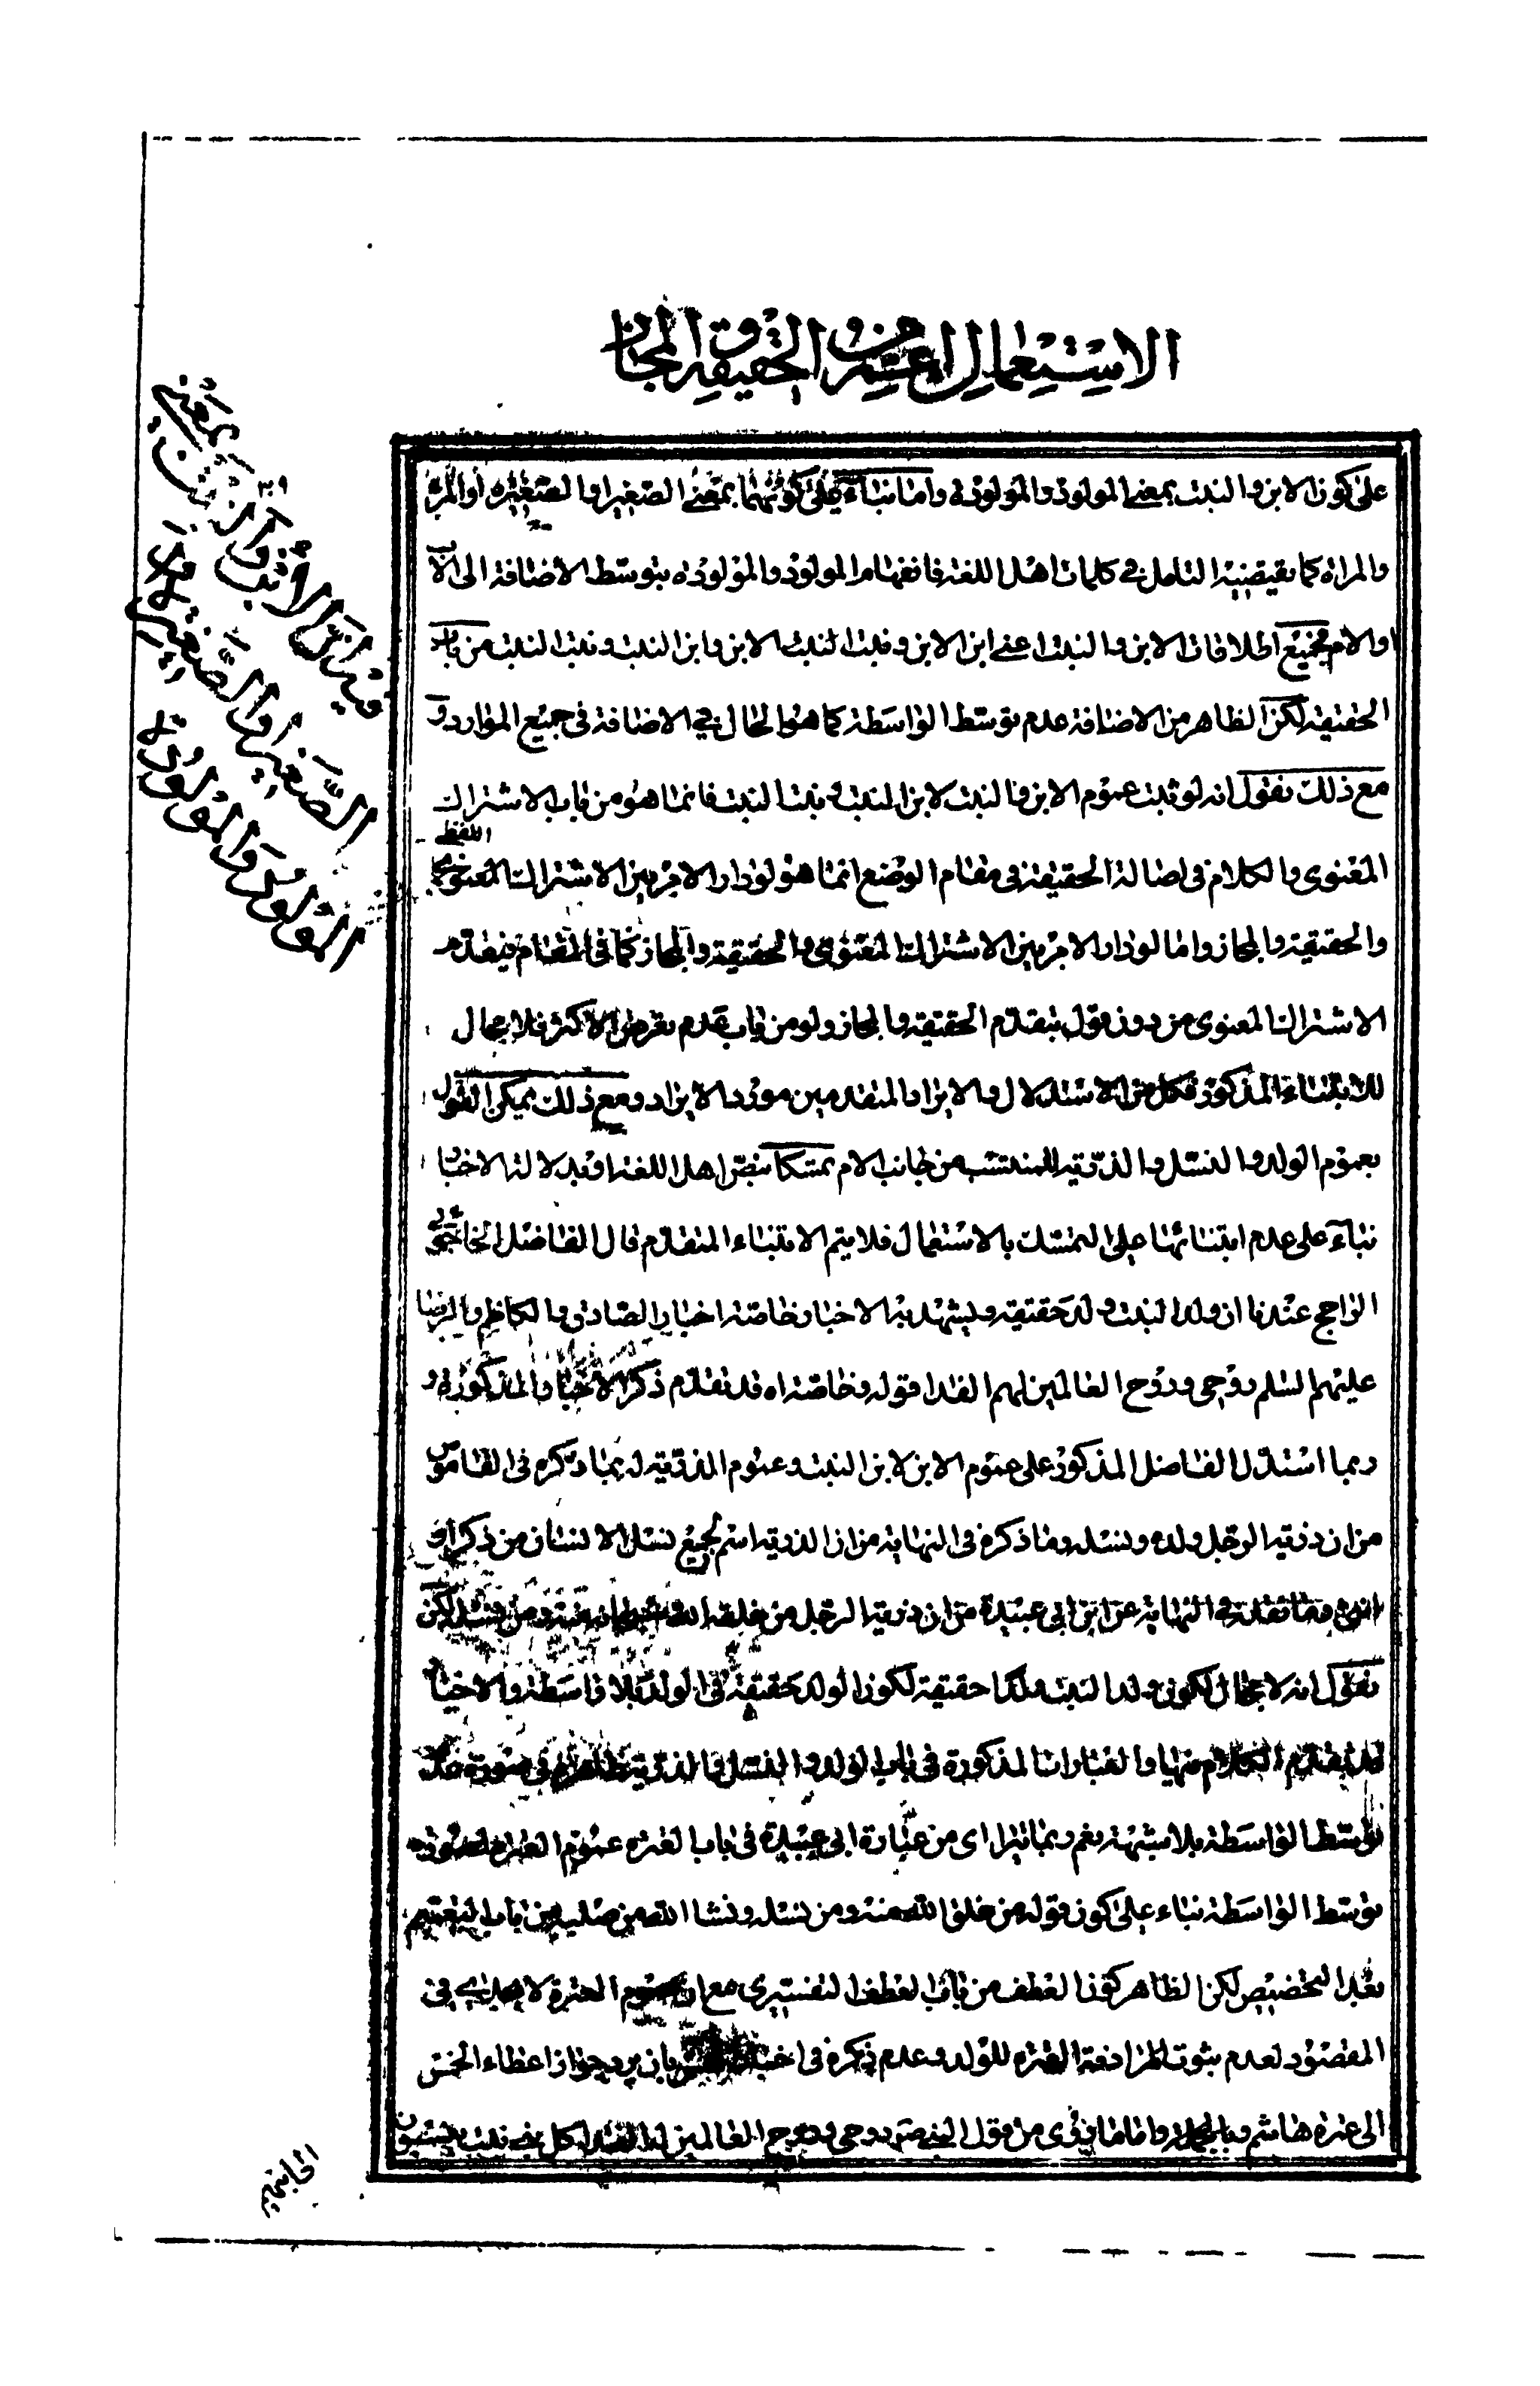 الاستعمال اعم من الحقيقة و المجاز
على كون الابن و البنت بمعنى المولود و المولودة و اما بناء على كونهما بمعنى الصغير او الصغيرة او المرء
و المراة كما يقيضيه التامل فى كلمات اهل اللغة فانفهام المولود و المولودة بتوسط الاضافة الى الاب
او الام فجميع اطلاقات الابن و البنت اعنى ابن الابن و بنت البنت الابن و ابن البنت و بنت البنت من باب
الحقيقة لكن الظاهر من الاضافة عدم توسط الواسطة كما هو الحال فى الاضافة فى جميع الموارد و
مع ذلك نقول انه لو ثبت عموم الابن و البنت لابن البنت و بنت البنت فانما هو من باب الاشتراك
المعنوى و الكلام فى اصالة الحقيقة فى مقام الوضع انما هو لو دار الامر بين الاشتراك اللفظى
و الحقيقة و المجاز و اما لو دار الامر بين الاشتراك المعنوى و الحقيقة و المجاز كما فى المقام فيقدم
الاشتراك المعنوى من دون قول بتقدم الحقيقة و المجاز و لو من باب عدم تعرض الاكثر فلا مجال
للابتناء المذكور فكل من الاستدلال و الايراد المتقدمين مورد الايراد و مع ذلك يمكن القول
بعموم الولد و النسل و الذرية للمنتسب من جانب الام تمسكا بنص اهل اللغة او بدلالة الاخبار
بناء على عدم ابتنائها على التمسك بالاستعمال فلا يتم الابتناء المتقدم قال الفاضل الخاجوئى
الراجح عندنا ان ولد البنت ولد حقيقة و يشهد به الاخبار خاصة اخبار الصادق و الكاظم و الرضا
عليهم السلم روحى و روح العالمين لهم الفدا قوله و خاصة اه قد تقدم ذكر الاخبار المذكورة و
ربما استدل الفاضل المذكور على عموم الابن لابن البنت و عموم الذرية له بما ذكره فى القاموس
من ان ذرية الرجل ولده و نسله و ما ذكره فى النهاية من ان الذرية اسم لجميع نسل الانسان من ذكر او
انثى و ما نقله فى النهاية عن ابن ابى عبيدة من ان ذرية الرجل من خلقه الله منه و من نسله لكن
نقول انه لا مجال لكون ولد البنت ولدا حقيقة لكون الولد حقيقة فى الولد بلا واسطة و الاخبار
قد تقدم الكلام فيها و العبارات المذكورة فى باب الولد و النسل و الذرية ظاهرة فى صورة عدم
توسط الواسطة بلا شبهة نعم ربما يتراى من عبارة ابى عبيدة فى باب العترة عموم العترة لصورة
توسط الواسطة بناء على كون قوله من خلق الله منه و من نسله و نشا الله من صلبه من باب التعميم
بعد التخصيص لكن الظاهر كون العطف من باب العطف التفسيرى مع ان عموم العترة لا يجدى فى
المقصود لعدم ثبوت المرادفة العترة للولد و عدم ذكره فى اخبار الخمس جواز اعطاء الخمس
الى عترة هاشم و بالجملة و اما ما روى من قول النبى ص روحى و روح العالمين له الفداء كل بنى بنت ينسبون
فى ان الابن و البنت بمعنى
الصغير و الصغيرة
المولود و المولودة